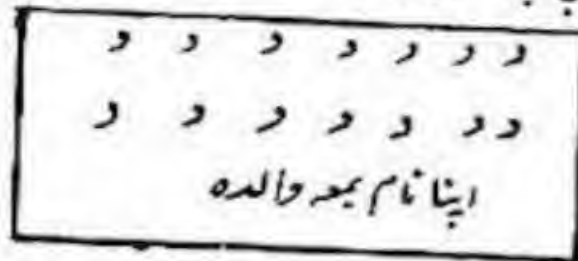 د د د د د د د
د د د د د د د
اپنا نام بمعہ والدہ